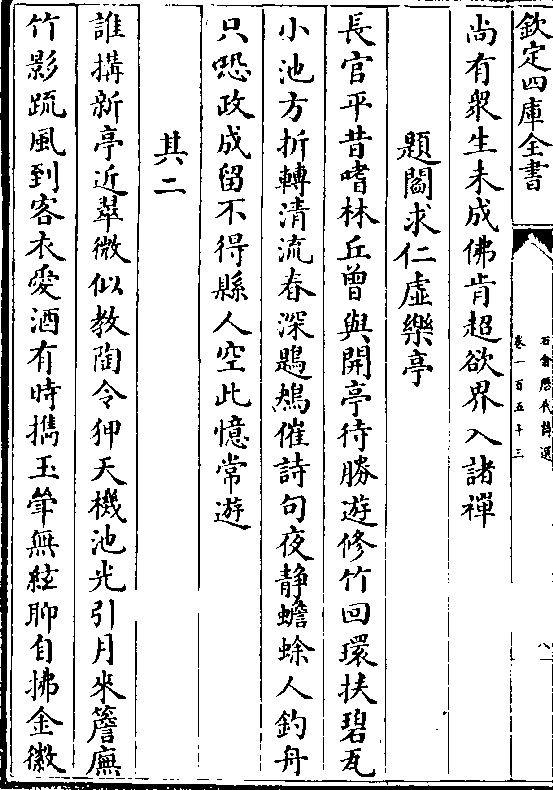 欽定四庫全書
石倉歷代詩選
卷一百五十三
八
尚有衆生未成佛肯超欲界入諸禪
題閻求仁虛樂亭
長官平昔嗜林丘曾與開亭待勝遊修竹回環扶碧瓦
小池方折轉清流春深鶗鴂催詩句夜静蟾蜍人釣舟
只恐政成留不得縣人空此憶常遊
其二
誰搆新亭近翠微似教陶令狎天機池光引月來簷廡
竹影䟽風到客衣愛酒有時攜玉斝無絃聊自拂金徽